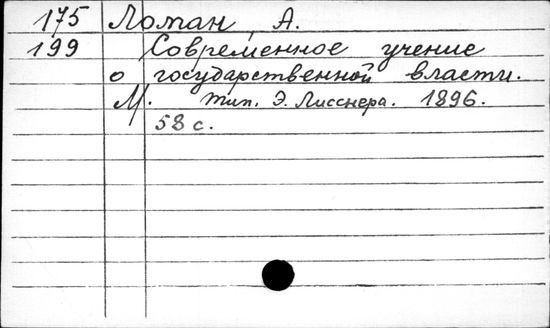 175 Ломан, А.
199 Современное учение
о государственной власти.
М. тип. Э. Лисснера. 1896.
58 с.